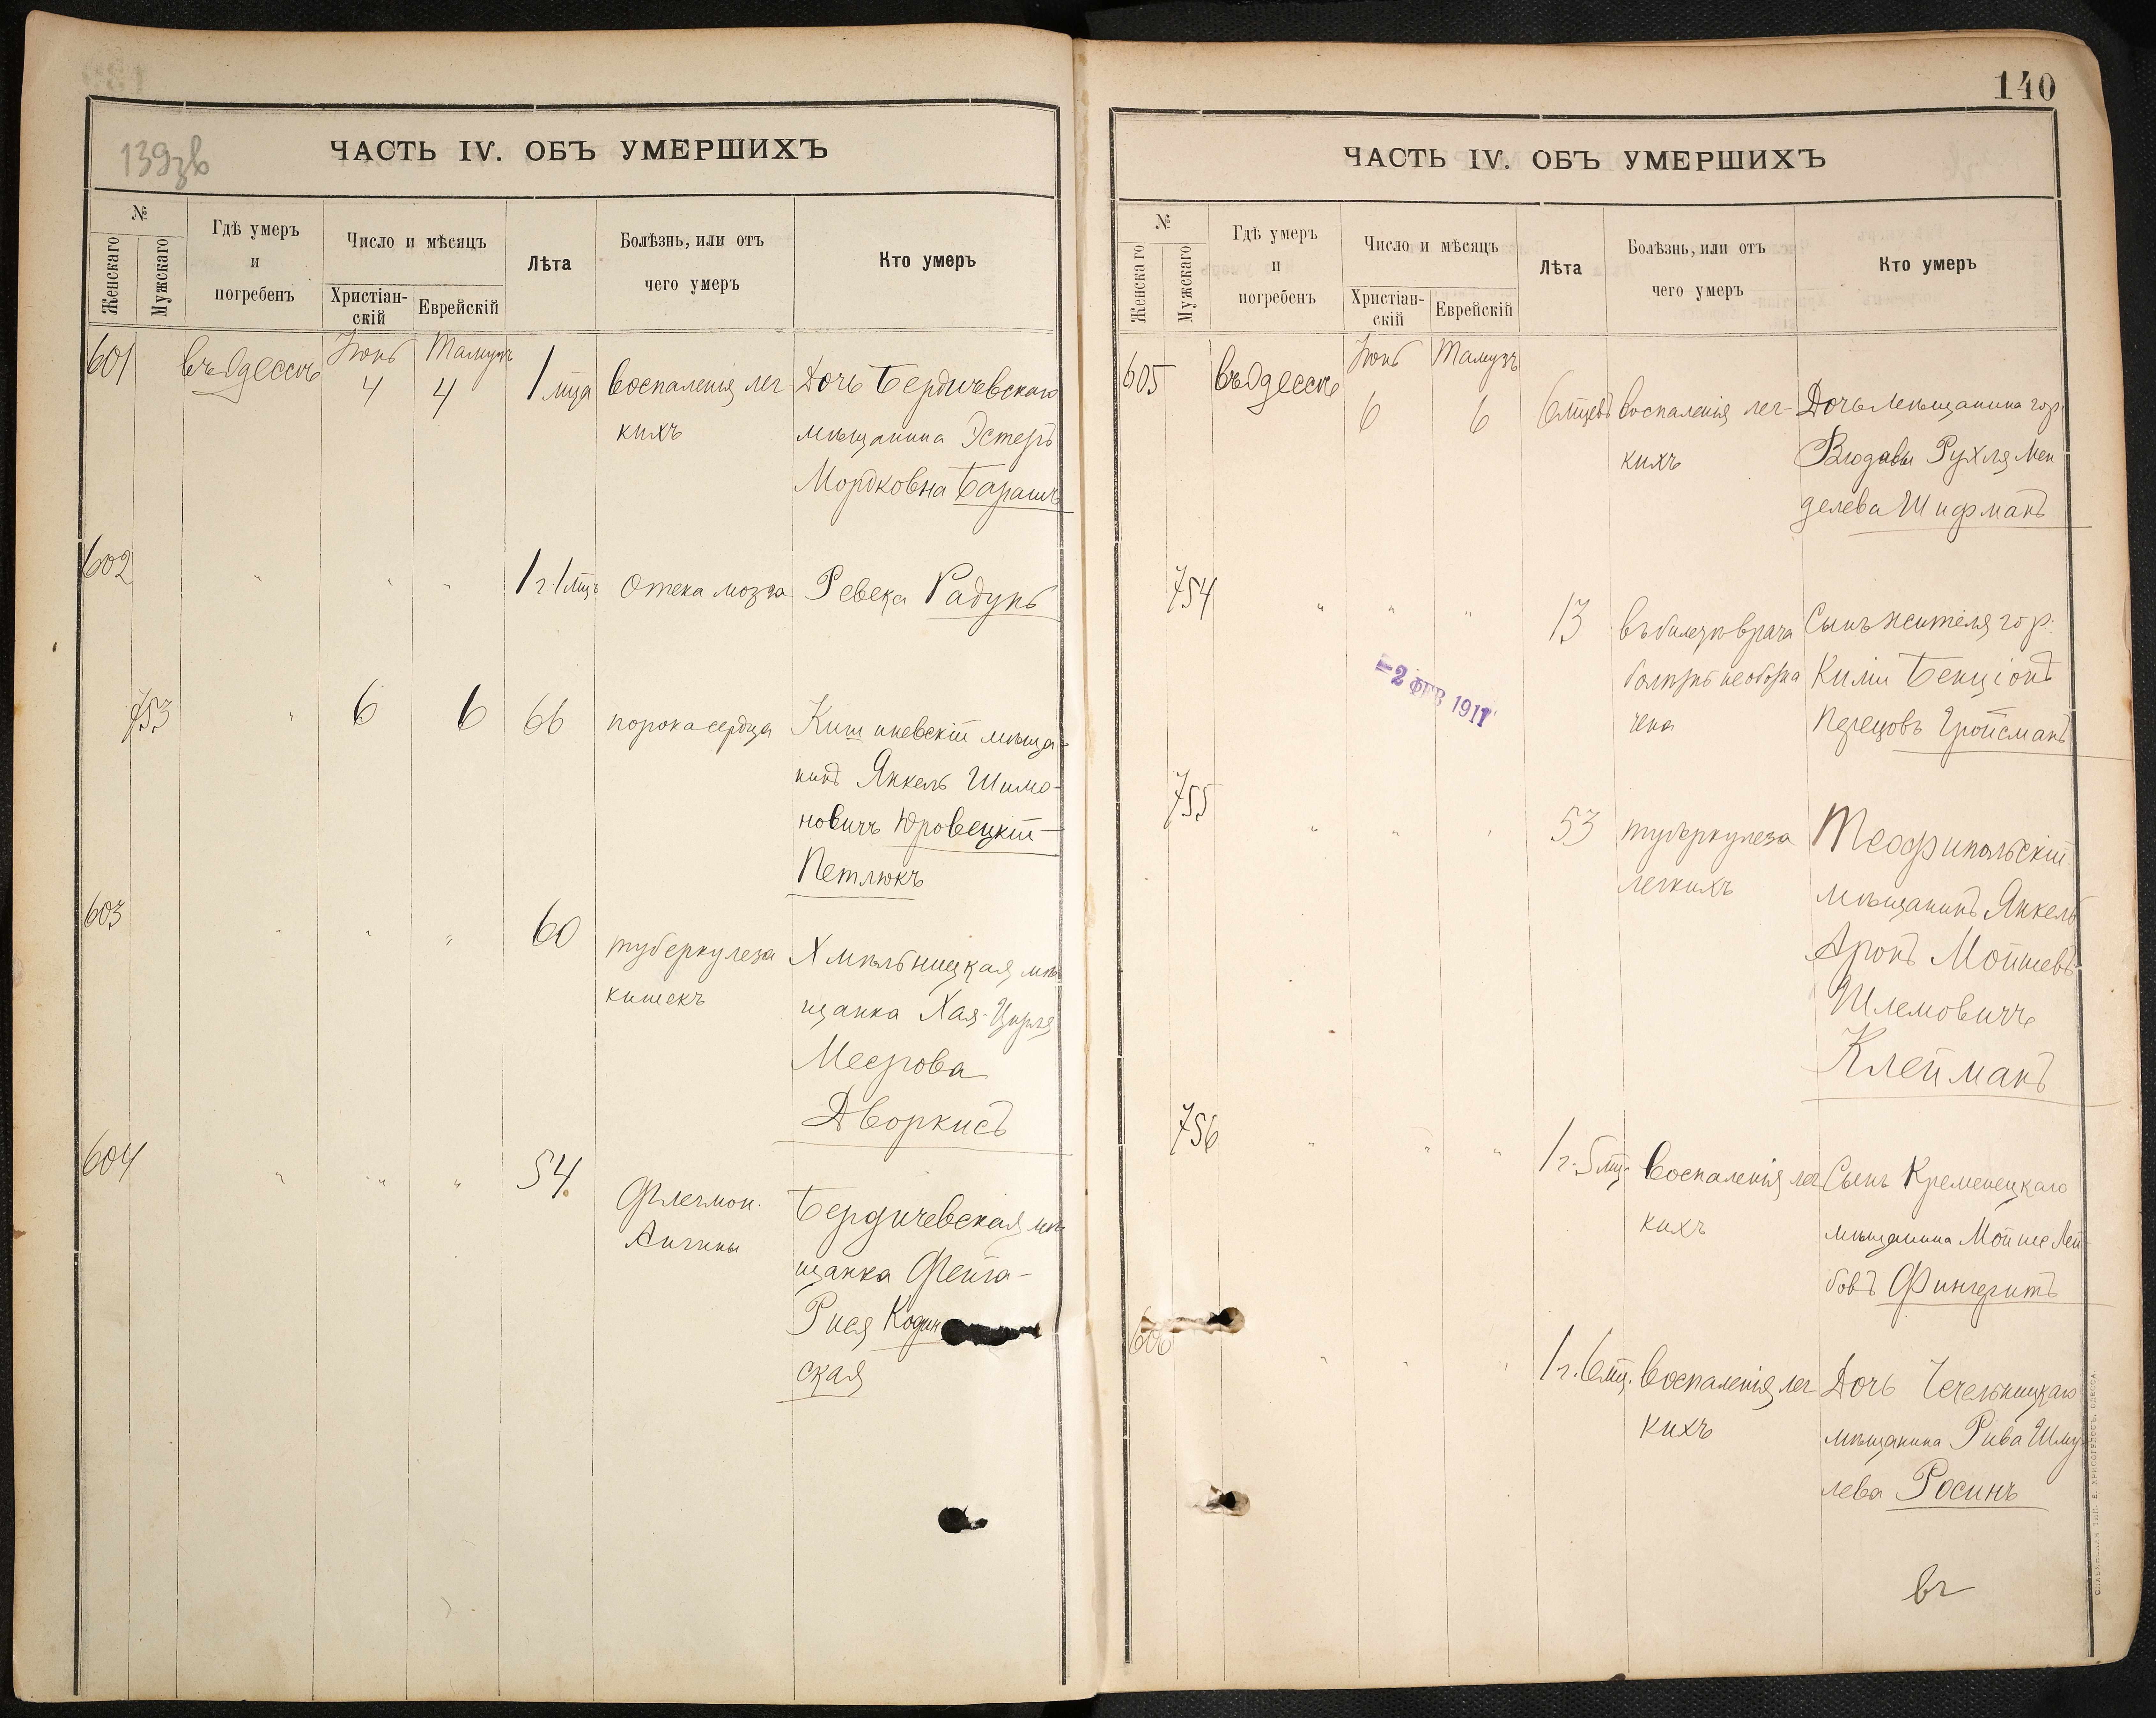 139зв
ЧАСТЬ IV. ОБЪ УМЕРШИХЪ
№
Женскаго
Мужскаго
Гдѣ умеръ
и
погребенъ
Число и мѣсяцъ
Христіан-
скій
Еврейскій
Лѣта
Болѣзнь, или отъ
чего умеръ
Кто умеръ
601 въ Одессѣ Іюнь 4 Тамузъ 4 1 мца воспаленія лег- Дочь Бердичевскаго
кихъ мѣщанина Эстеръ
Мордковна Барашъ
602 " " " 1 г 1 мцъ Отека мозга Ревека Радунь
753 " 6 6 66 порока сердца Кишиневскій мѣща-
нинъ Янкель Шимо-
новичъ Юровецкій-
Петлюкъ
603 " " " 60 туберкулеза Хмѣльницкая мѣ
кишекъ щанка Хая-Цирля
Меерова
Дворкисъ
604 " " " 54. Флегмон. Бердичевская мѣ
Ангины щанка Фейга-
Рися Кодин
ская
140
ЧАСТЬ IV. ОБЪ УМЕРШИХЪ
№
Женскаго
Мужскаго
Гдѣ умеръ
и
погребенъ
Число и мѣсяцъ
Христіан-
скій
Еврейскій
Лѣта
Болѣзнь, или отъ
чего умеръ
Кто умеръ
605 въ Одессѣ Іюнь 6 Тамузъ 6 6 мцевъ воспаленія лег- Дочь мѣщанина гор.
кихъ Влодавы Рухля Мен
делева Шифманъ
754 " " " 13 въ билетѣ врача Сынъ жителя гор.
болѣзнь необозна Киліи Бенціонъ
чена Перецовъ Гройсманъ
-2 ФЕВ 1911
755 " " " 53 туберкулеза Теофипольскій
легкихъ мѣщанинъ Янкель
Аронъ Мойшевъ-
Шлемовичъ
Клейманъ
756 " " " 1 г. 5 мц. Воспаленія лег Сынъ Кременецкаго
кихъ мѣщанина Мойше Лей
бовъ Фингеритъ
606 " " " 1 г. 6 мц. Воспаленія лег Дочь Чечельницкаго
кихъ мѣщанина Рива Шму
лева Росинъ
СЛАВЯНСКАЯ ТИП. Е. ХРИСОГЕЛОСЪ, ОДЕССА.